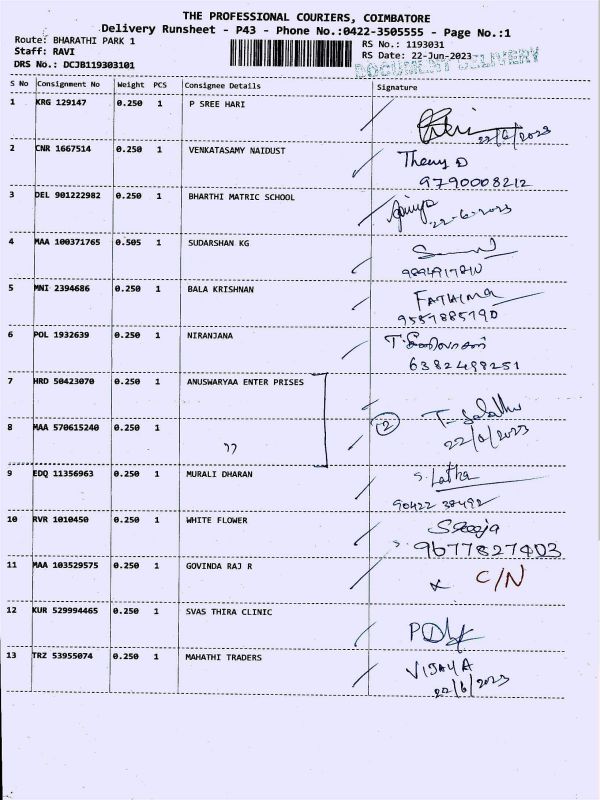 THE PROFESSIONAL COURIERS, COIMBATORE
Delivery Runsheet - P43 - Phone No.:0422-3505555 - Page No.:1
Route: BHARATHI PARK 1 RS No.: 1193031
Staff: RAVI RS Date: 22-Jun-2023
DRS No.: DCJB119303101 DOCUMENT DELIVERY
S No Consignment No Weight PCS Consignee Details Signature
1 KRG 129147 0.250 1 P SREE HARI
22/6/2023
2 CNR 1667514 0.250 1 VENKATASAMY NAIDUST
9790008212
3 DEL 901222982 0.250 1 BHARTHI MATRIC SCHOOL
22-6-2023
4 MAA 100371765 0.505 1 SUDARSHAN KG
5 MNI 2394686 0.250 1 BALA KRISHNAN FATHIMA
6 POL 1932639 0.250 1 NIRANJANA
6382498251
7 HRD 50423070 0.250 1 ANUSWARYAA ENTER PRISES
8 MAA 570615240 0.250 1 " 2
9 EDQ 11356963 0.250 1 MURALI DHARAN S. Latha
10 RVR 1010450 0.250 1 WHITE FLOWER Saroja
9677827403
11 MAA 103529575 0.250 1 GOVINDA RAJ R
C/N
12 KUR 529994465 0.250 1 SVAS THIRA CLINIC
13 TRZ 53955074 0.250 1 MAHATHI TRADERS VIJAYA
22/6/2023